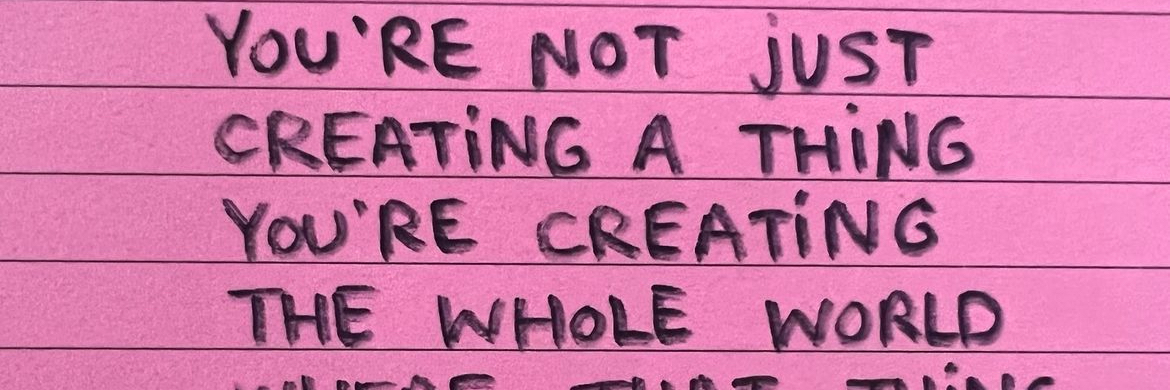 YOU'RE NOT jUST
CREATiNG A THiNG
YOU'RE CREATiNG
THE WHOLE WORLD
WHERE THAT THiNG